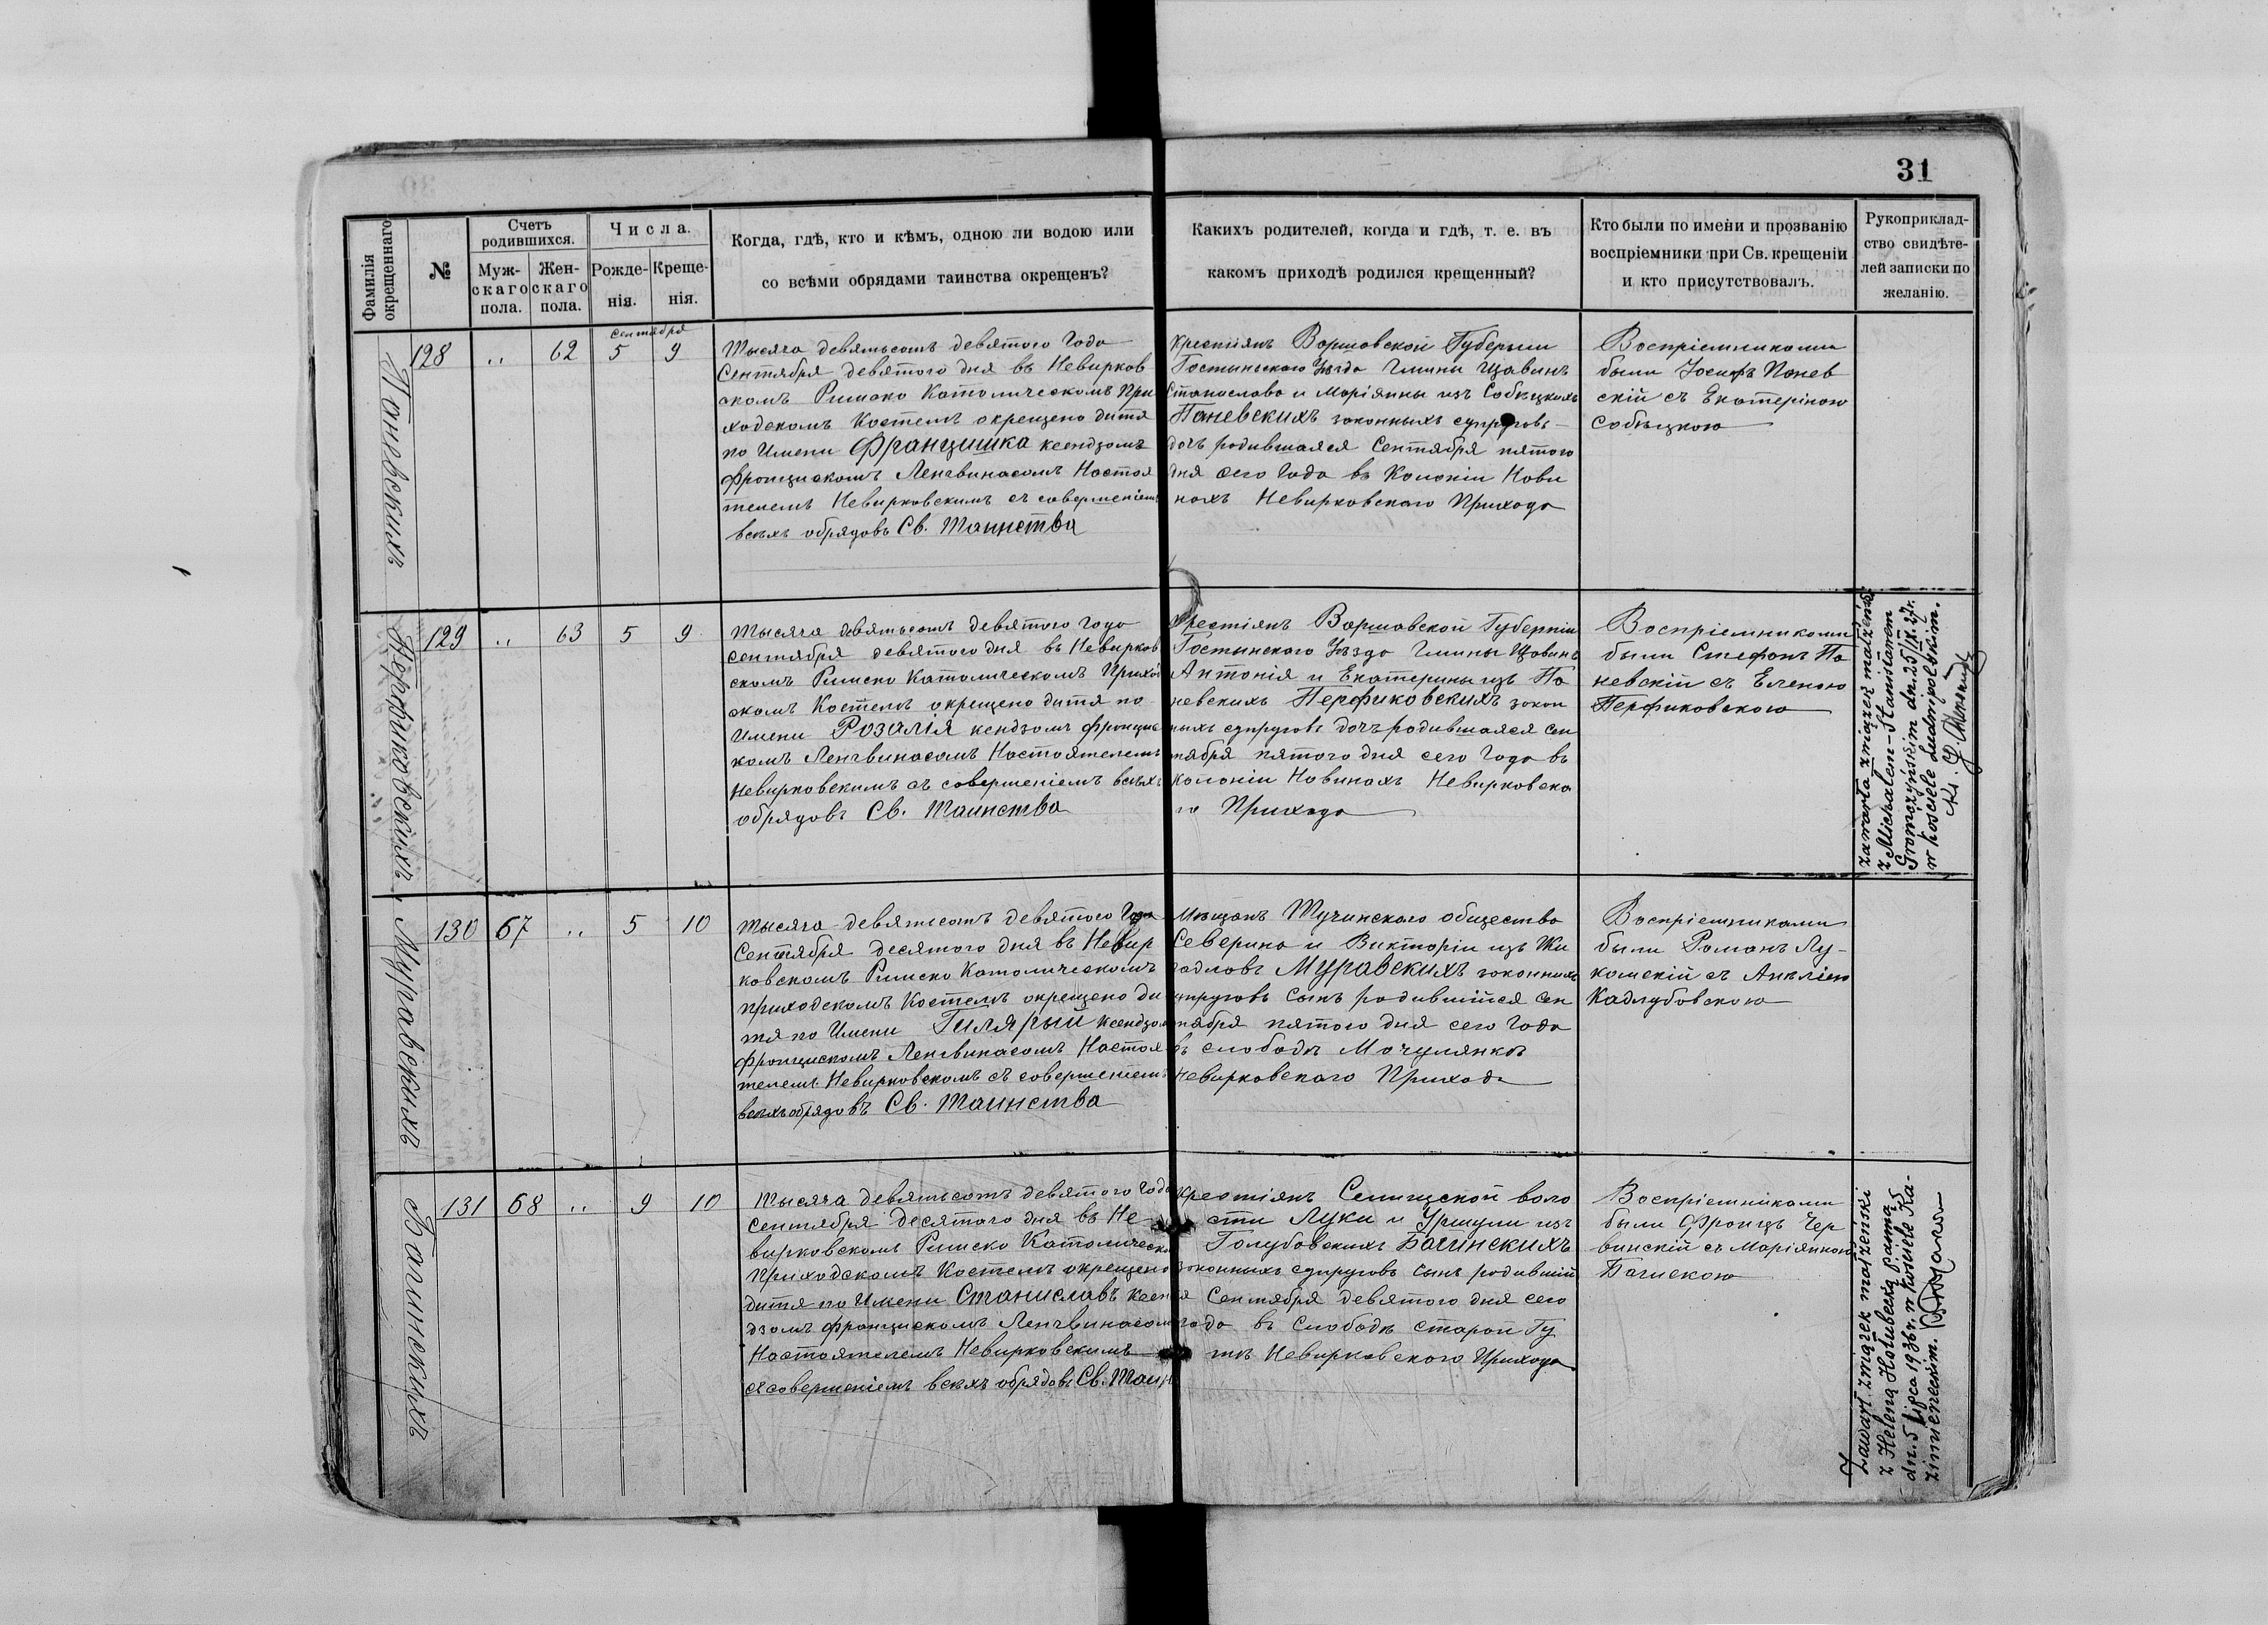 31
Фамилія окрещеннаго
№
Счетъ родившихся.
Муж-
скаго
пола.
Жен-
скаго
пола.
Числа.
Рожде-
нія.
Креще-
нія.
Когда, гдѣ, кто и кѣмъ, одною ли водою или
со всѣми обрядами таинства окрещенъ?
Какихъ родителей, когда и гдѣ, т. е. въ
какомъ приходѣ родился крещенный?
Кто были по имени и прозванію
воспріемники при Св. крещеніи
и кто присутствовалъ.
Рукоприклад-
ство свидѣте-
лей записки по
желанію.
Сентября
Паневскихъ
128 .. 62 5 9
Тысяча девятьсотъ девятого Года
Сентября девятого дня въ Невирков
скомъ Римско Католическомъ При
ходскомъ Костелѣ окрещено дитя
по Имени Францишка ксендзомъ
Францискомъ Ленгвинасомъ Настоя
телемъ Невирковскимъ съ совершеніемъ
всѣхъ обрядовъ Св. Таинства
Крестіянъ Варшавской Губерніи
Гостыньскаго Уѣзда Гмины Щавинъ
Станислава и Маріянны изъ Собѣцкихъ
Паневскихъ законныхъ супруговъ
дочь родившаяся Сентября пятого
дня сего Года въ Колоніи Нови
нахъ Невирковскаго Прихода
Воспріемниками
были Іосифъ Панев
скій съ Екатериною
Собѣцкою
Перфиковскихъ
129 .. 63 5 9
Тысяча девятьсотъ девятого Года
Сентября девятого дня въ Невирков
скомъ Римско Католическомъ Приход
скомъ Костелѣ окрещено дитя по
Имени Розалія ксендзомъ Францис
комъ Ленгвинасомъ Настоятелемъ
Невирковскимъ съ совершеніемъ всѣхъ
обрядовъ Св. Таинства
Крестіянъ Варшавской Губерніи
Гостынскаго Уѣзда Гмины Щавинъ
Антонія и Екатерины изъ Па
невскихъ Перфиковскихъ закон
ныхъ супруговъ дочь родившаяся Сен
тября пятого дня сего Года въ
колоніи Новинахъ Невирковска
го Прихода
Воспріемниками
были Стефанъ Па
невскій съ Еленою
Перфиковскою
zawarła związek małżeński
z Michałem-Stanisławem
Gromczyńskim dn. 25/IX.27r.
w kościele Ludwipolskim.
Ks.
Муравскихъ
130 67 .. 5 10
Тысяча девятьсотъ девятого Года
Сентября десятого дня въ Невир
ковскомъ Римско Католическомъ
приходскомъ Костелѣ окрещено ди
тя по Имени Гилярый Ксендзомъ
Францискомъ Ленгвинасомъ Настоя
телемъ Невирковскомъ съ совершеніемъ
всѣхъ обрядовъ Св. Таинства
Мѣщанъ Тучинскаго общества
Северина и Викторіи изъ Жи
дадловъ Муравскихъ законныхъ
супруговъ сынъ родившійся Сен
тября пятого дня сего Года
въ слободѣ Мочулянкѣ
Невирковскаго Прихода
Воспріемниками
были Романъ Лу-
комскій съ Анѣліею
Кадлубовскою
Багинскихъ
131 68 .. 9 10
Тысяча девятьсотъ девятого Года
Сентября десятого дня въ Не
вирковскомъ Римско Католическомъ
Приходскомъ Костелѣ окрещено
дитя по Имени Станиславъ Ксен
дзомъ Францискомъ Ленгвинасомъ
Настоятелемъ Невирковскимъ
съ совершеніемъ всѣхъ обрядовъ Св. Таин
Крестіянъ Селищской воло
сти Луки и Уршули изъ
Голубовскихъ Багинскихъ
законныхъ супруговъ сынъ родившій
ся Сентября девятого дня сего
года въ Слободѣ Старой Гу
тѣ Невирковского Прихода
Воспріемниками
были Францъ Чер
винскій съ Маріянною
Багискою
Zawarł związek małżeński
z Heleną Hołubecką panną
dn. 5 lipca 1936 r. w kościele Ka-
zimierskim.